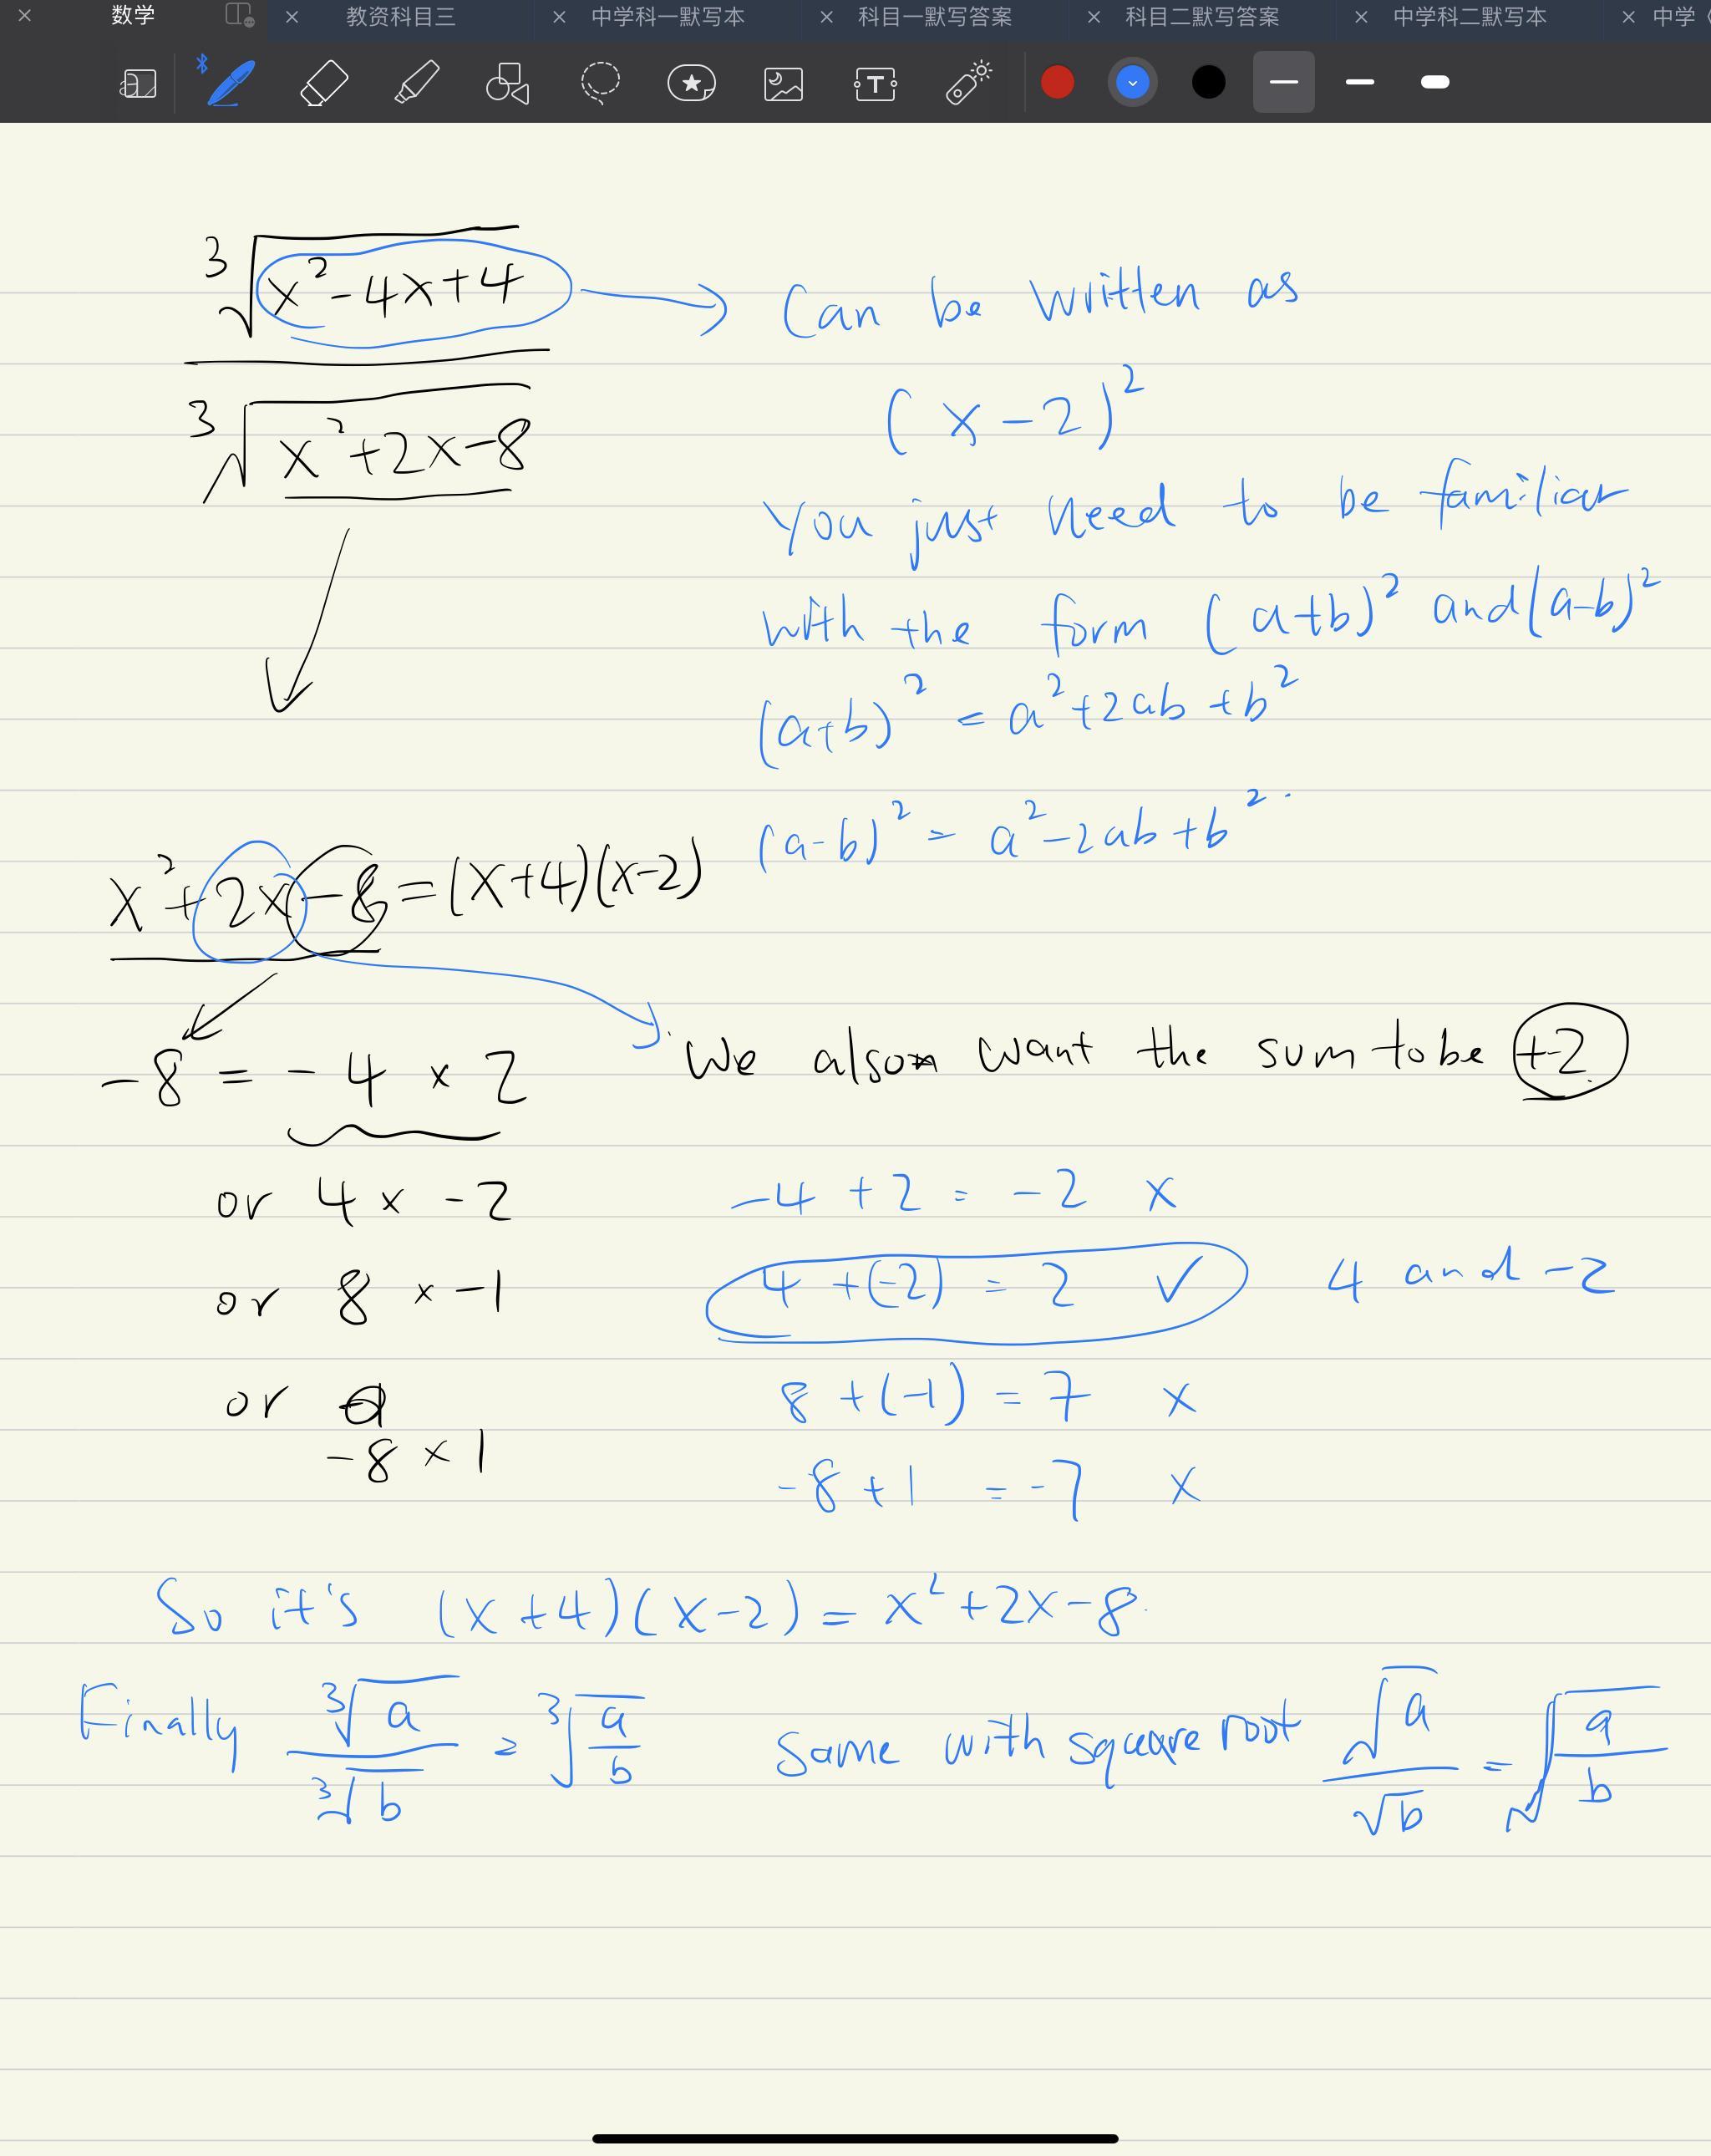 数学 教资科目三 中学科一默写本 科目一默写答案 科目二默写答案 中学科二默写本 中学
∛(x²-4x+4) → Can be written as
∛(x²+2x-8)
(x-2)²
You just need to be familiar
with the form (a+b)² and (a-b)²
(a+b)² = a²+2ab+b²
(a-b)² = a²-2ab+b².
x²+2x-8=(x+4)(x-2)
We also want the sum to be +2
-8 = -4 × 2
or 4 × -2
or 8 × -1
or
-8 × 1
-4 + 2 = -2 ×
4 +(-2) = 2 ✓ 4 and -2
8 +(-1) = 7 ×
-8+1 = -7 ×
So it's (x+4)(x-2) = x²+2x-8.
Finally ∛a/∛b = ∛(a/b) Same with square root √a/√b = √(a/b)